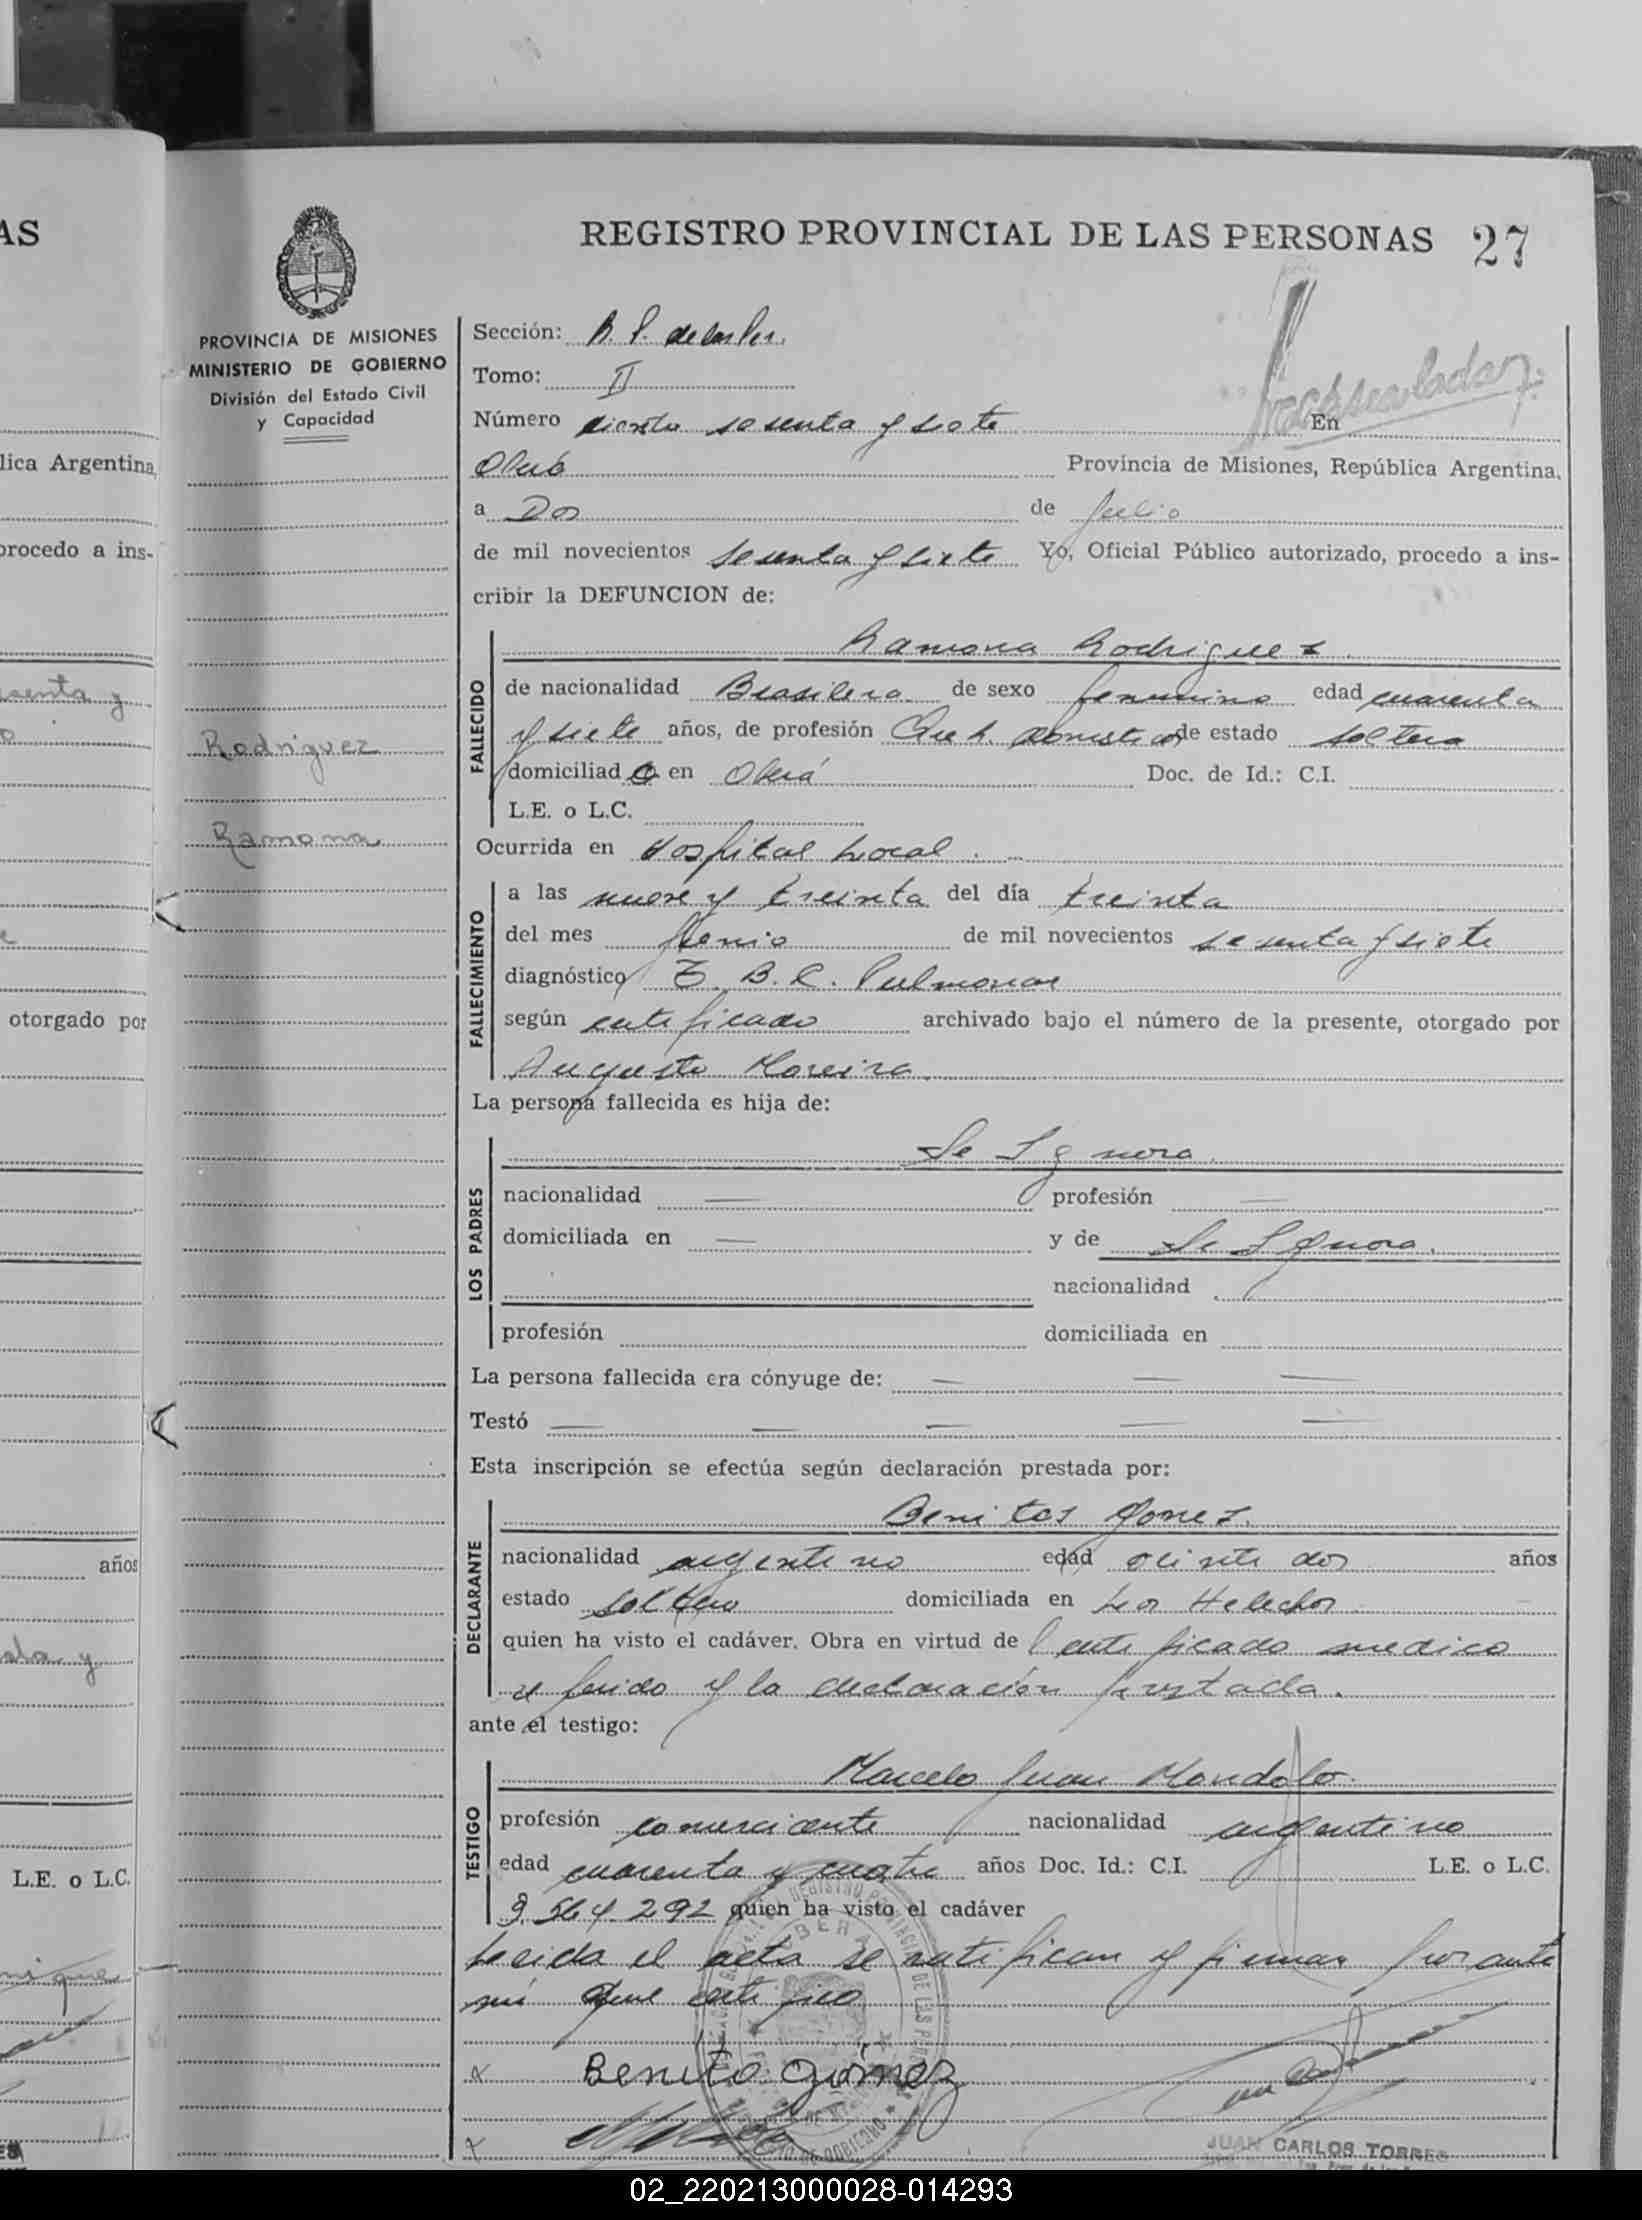 AS
REGISTRO PROVINCIAL DE LAS PERSONAS 27
PROVINCIA DE MISIONES
MINISTERIO DE GOBIERNO
División del Estado Civil
y Capacidad
Rodríguez
Ramona
Sección: R. P. de las Per.
Tomo: II
Número ciento sesenta y siete En
Oberá Provincia de Misiones, República Argentina,
a Dos de Julio
de mil novecientos sesenta y siete Yo, Oficial Público autorizado, procedo a ins-
cribir la DEFUNCION de:
FALLECIDO
Ramona Rodriguez
de nacionalidad Brasilera de sexo femenino edad cuarenta
y siete años, de profesión Queh. domesticos de estado soltera
domiciliado en Oberá Doc. de Id.: C.I.
L.E. o L.C.
Ocurrida en Hospital Local.
FALLECIMIENTO
a las nueve y treinta del día treinta
del mes Junio de mil novecientos sesenta y siete
diagnóstico T. B. C. Pulmonar
según certificado archivado bajo el número de la presente, otorgado por
Augusto Moreira
La persona fallecida es hija de:
LOS PADRES
Se Ignora.
nacionalidad — profesión —
domiciliada en — y de Se Ignora.
nacionalidad
profesión domiciliada en
La persona fallecida era cónyuge de: — — —
Testó — — — — —
Esta inscripción se efectúa según declaración prestada por:
DECLARANTE
Benitos Gomez.
nacionalidad argentino edad veinte dos años
estado soltero domiciliada en Los Helechos
quien ha visto el cadáver. Obra en virtud de certificado medico
referido y la declaración prestada.
ante el testigo:
TESTIGO
Marcelo Juan Mandolo.
profesión comerciante nacionalidad argentino
edad cuarenta y cuatro años Doc. Id.: C.I. L.E. o L.C.
3.564.292 quien ha visto el cadáver
Leida el acta se ratifican y firman por ante
mi que certifico
x Benito Gómez
x
JUAN CARLOS TORRES
lica Argentina,
procedo a ins-
otorgado por
años
L.E. o L.C.
02_220213000028-014293